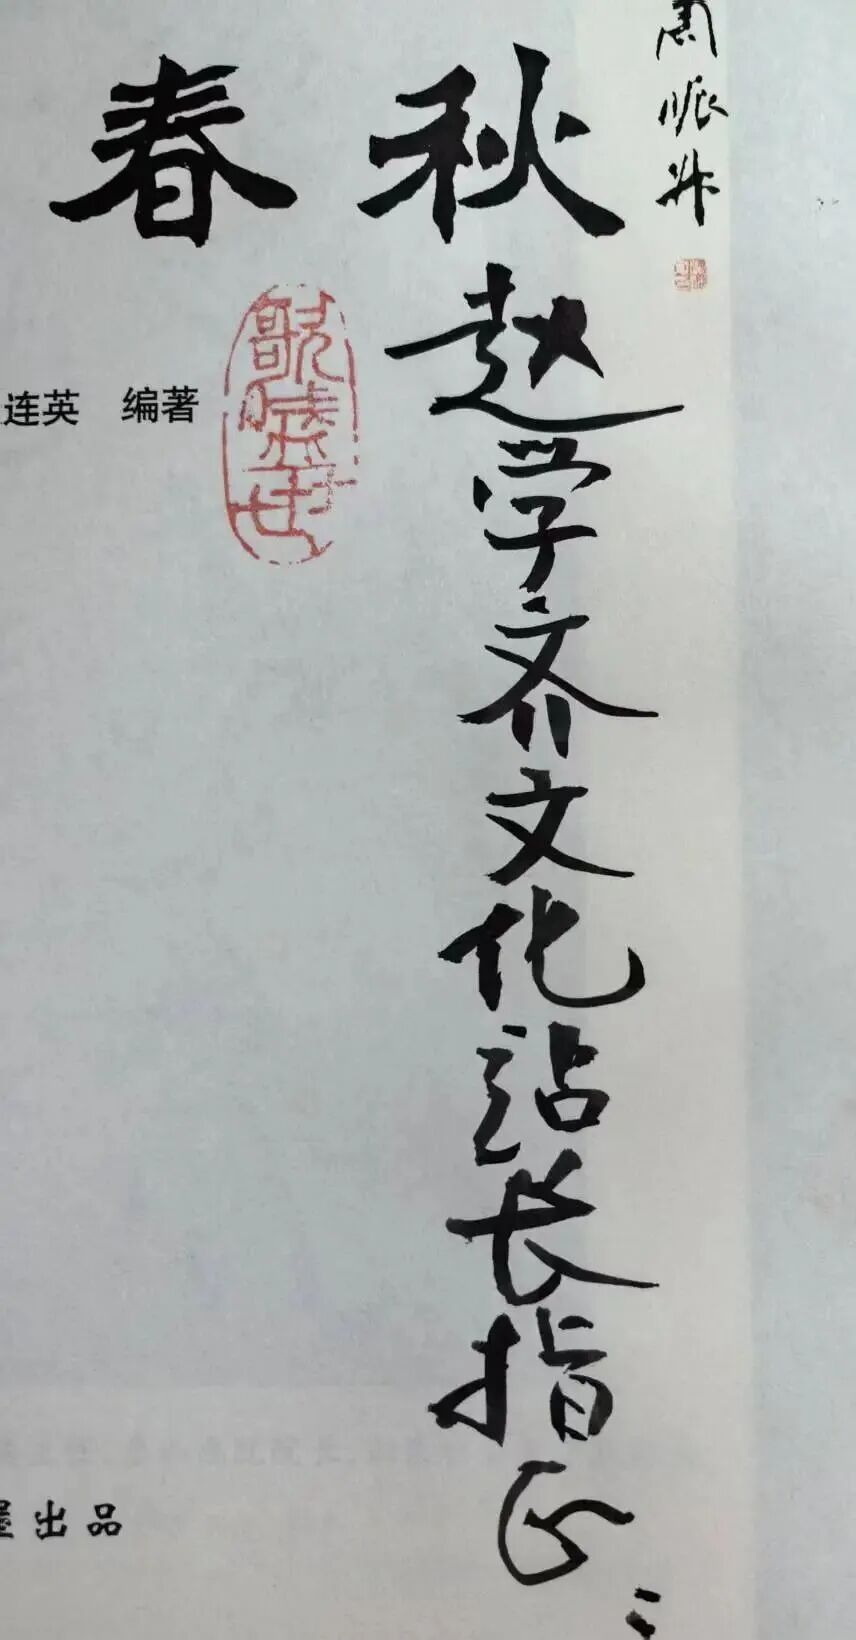 春秋
连英 编著
赵学齐文化站长指正
出品